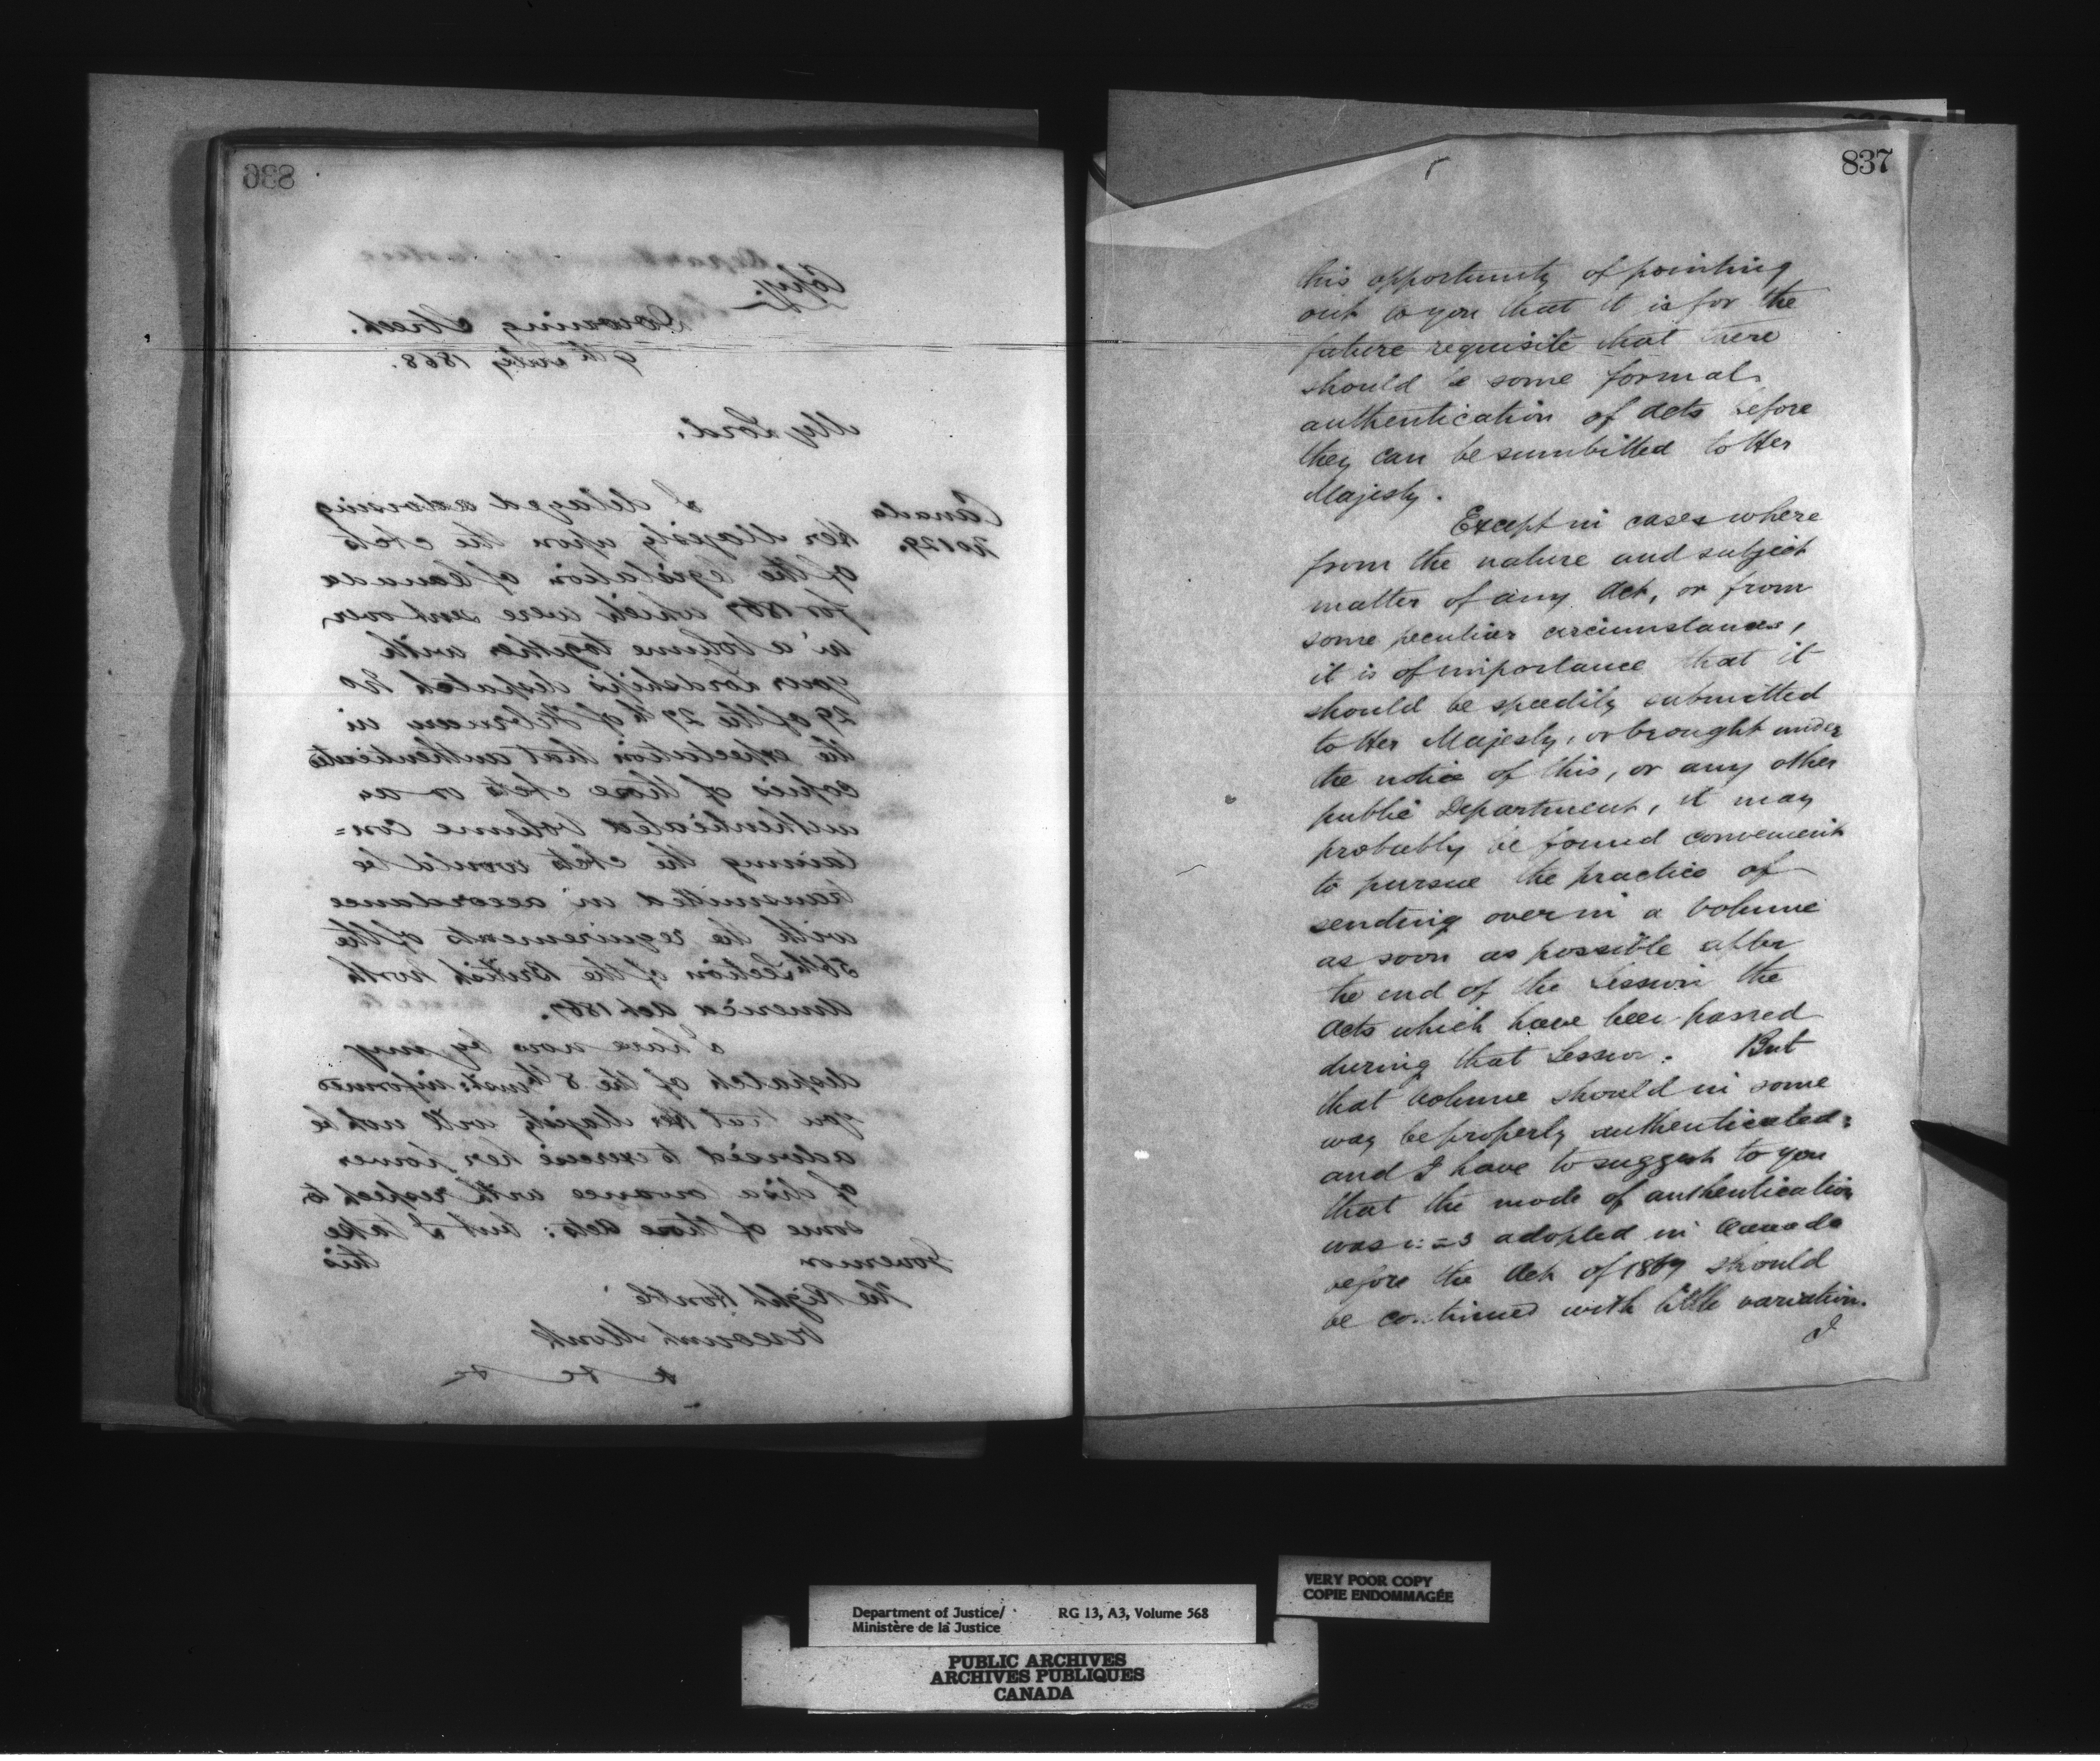 836
Copy.
Downing Street.
9th July 1868.
My Lord.
Canada
No 129.
I delayed advising
Her Majesty upon the Acts
of the Legislation of Canada
for 1867 which were sent over
in a Volume together with
your Lordship's despatch No
29 of the 27th of February in
the expectation that authenticated
copies of those Acts or an
authenticated Volume con=
taining the Acts would be
transmitted in accordance
with the requirements of the
56th Section of the British North
America Act 1867.
I have now by my
despatch of the 8th inst: informed
you that Her Majesty will not be
advised to exercise her power
of disallowance with respect to
some of those Acts: but I take
Governor this
The Right Honble
Viscount Monk
&c &c
837
this opportunity of pointing
out to you that it is for the
future requisite that there
should be some formal
authentication of Acts before
they can be sumbitted to Her
Majesty.
Except in cases where
from the nature and subject
matter of any Act, or from
some peculiar circumstances,
it is of importance that it
should be speedily submitted
to Her Majesty, or brought under
the notice of this, or any other
public Department, it may
probably be found convenient
to pursue the practice of
sending over in a Volume
as soon as possible after
the end of the Session the
Acts which have been passed
during that Session. But
that Volume should in some
way be properly authenticated:
and I have to suggest to you
that the mode of authentication
was adopted in Canada
before the Act of 1867 should
be continued with little variation.
I
VERY POOR COPY
COPIE ENDOMMAGÉE
Department of Justice/ RG 13, A3, Volume 568
Ministère de la Justice
PUBLIC ARCHIVES
ARCHIVES PUBLIQUES
CANADA